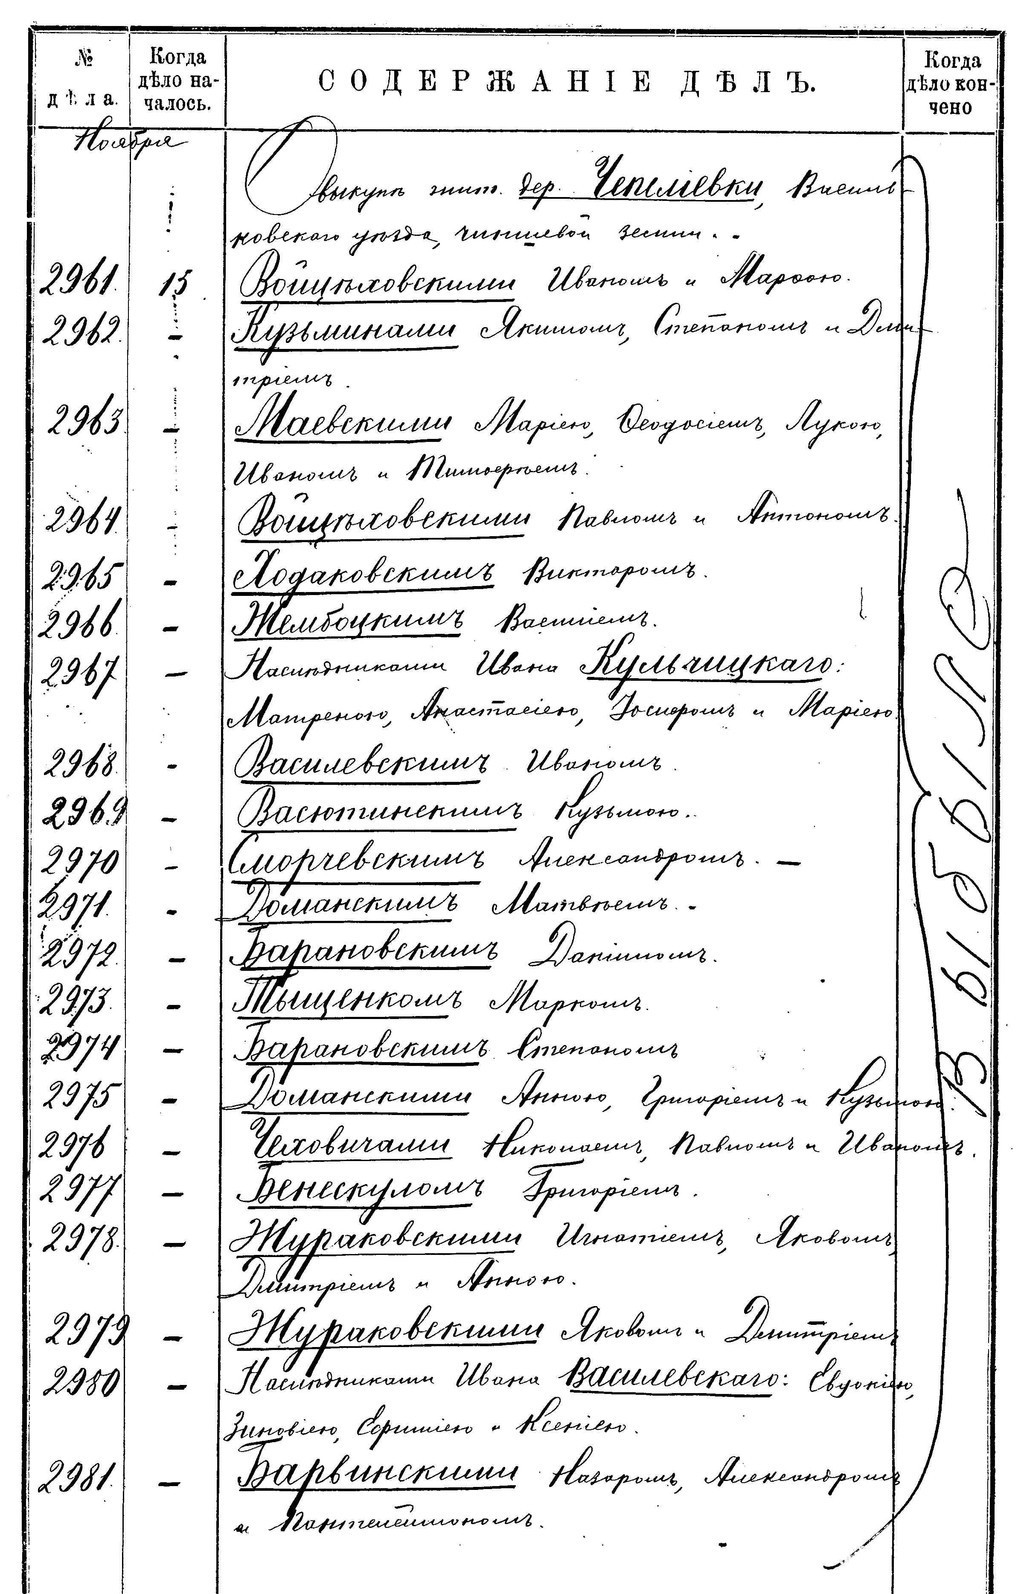 № дѣла.
Когда дѣло началось.
СОДЕРЖАНІЕ ДѢЛЪ.
Когда дѣло кончено
Ноября
О выкупѣ жит. дер. Чепелiевки, Василь-
ковскаго уѣзда, чиншевой земли.
2961. 15 Войцѣховскими Иваномъ и Марѳою.
2962. - Кузьминами Якимомъ, Степаномъ и Дми-
тріемъ.
2963 - Маевскими Маріею, Ѳеодосіемъ, Лукою,
Иваномъ и Тимоѳеемъ.
2964. - Войцѣховскими Павломъ и Антономъ.
2965 - Ходаковскимъ Викторомъ.
2966. - Жембоцкимъ Василіемъ.
2967 - Наслѣдниками Ивана Кульчицкаго:
Матреною, Анастасіею, Іосифомъ и Маріею
2968. - Василевскимъ Иваномъ.
2969 - Васютинскимъ Кузьмою.
2970 - Сморчевскимъ Александромъ. -
2971. - Доманскимъ Матвѣемъ. -
2972. - Барановскимъ Даніиломъ.
2973. - Тыщенкомъ Маркомъ.
2974 - Барановскимъ Степаномъ
2975 - Доманскими Анною, Григоріемъ и Кузьмою.
2976 - Чеховичами Николаемъ, Павломъ и Иваномъ.
2977 - Бенескуломъ Григоріемъ.
2978. - Жураковскими Игнатіемъ, Яковомъ,
Дмитріемъ и Анною.
2979 - Жураковскими Яковомъ и Дмитріемъ
2980 - Наслѣдниками Ивана Василевскаго: Евдокіею,
Зиновіею, Софиміею и Ксеніею.
2981. - Барвинскими Назаромъ, Александромъ
и Пантелеимономъ.
Выбыло